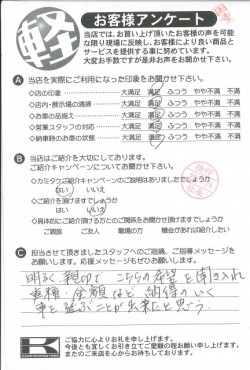 軽
お客様アンケート
当店では、お買い上げ頂いたお客様の声を可能
な限り現場に反映し、お客様により良い商品と
サービスを提供する事に努めております。
大変お手数ですが是非お声をお聞かせ下さい。
A 当店を実際にご利用になった印象をお聞かせ下さい。
◇店の印象 大満足 満足 ふつう やや不満 不満
◇店内・展示場の清掃 大満足 満足 ふつう やや不満 不満
◇お車の品揃え 大満足 満足 ふつう やや不満 不満
◇営業スタッフの対応 大満足 満足 ふつう やや不満 不満
◇納車時のお車の状態 大満足 満足 ふつう やや不満 不満
B 当店はご紹介を大切にしております。
ご紹介キャンペーンについてお聞かせ下さい。
◇カミタケご紹介キャンペーンのご説明はありましたでしょうか
はい いいえ
◇ご紹介を頂けますでしょうか
はい いいえ
◇具体的にご紹介頂ける方とのご関係をお聞かせ頂けますでしょうか
ご親族 ご友人 職場の方 機会があれば紹介したい
C 担当させて頂きましたスタッフへのご感想、ご指導メッセージを
お願いします。応援メッセージもぜひお願いします。
明るく親切で こちらの希望を聞き入れ
車種・金額など 納得のいく
車を選ぶことが出来たと思う。
ご協力に心よりお礼を申し上げます。
今後とも末しくお引き立てご愛顧の程お願い申し上げます。
またのご来店を心からお待ちしております。